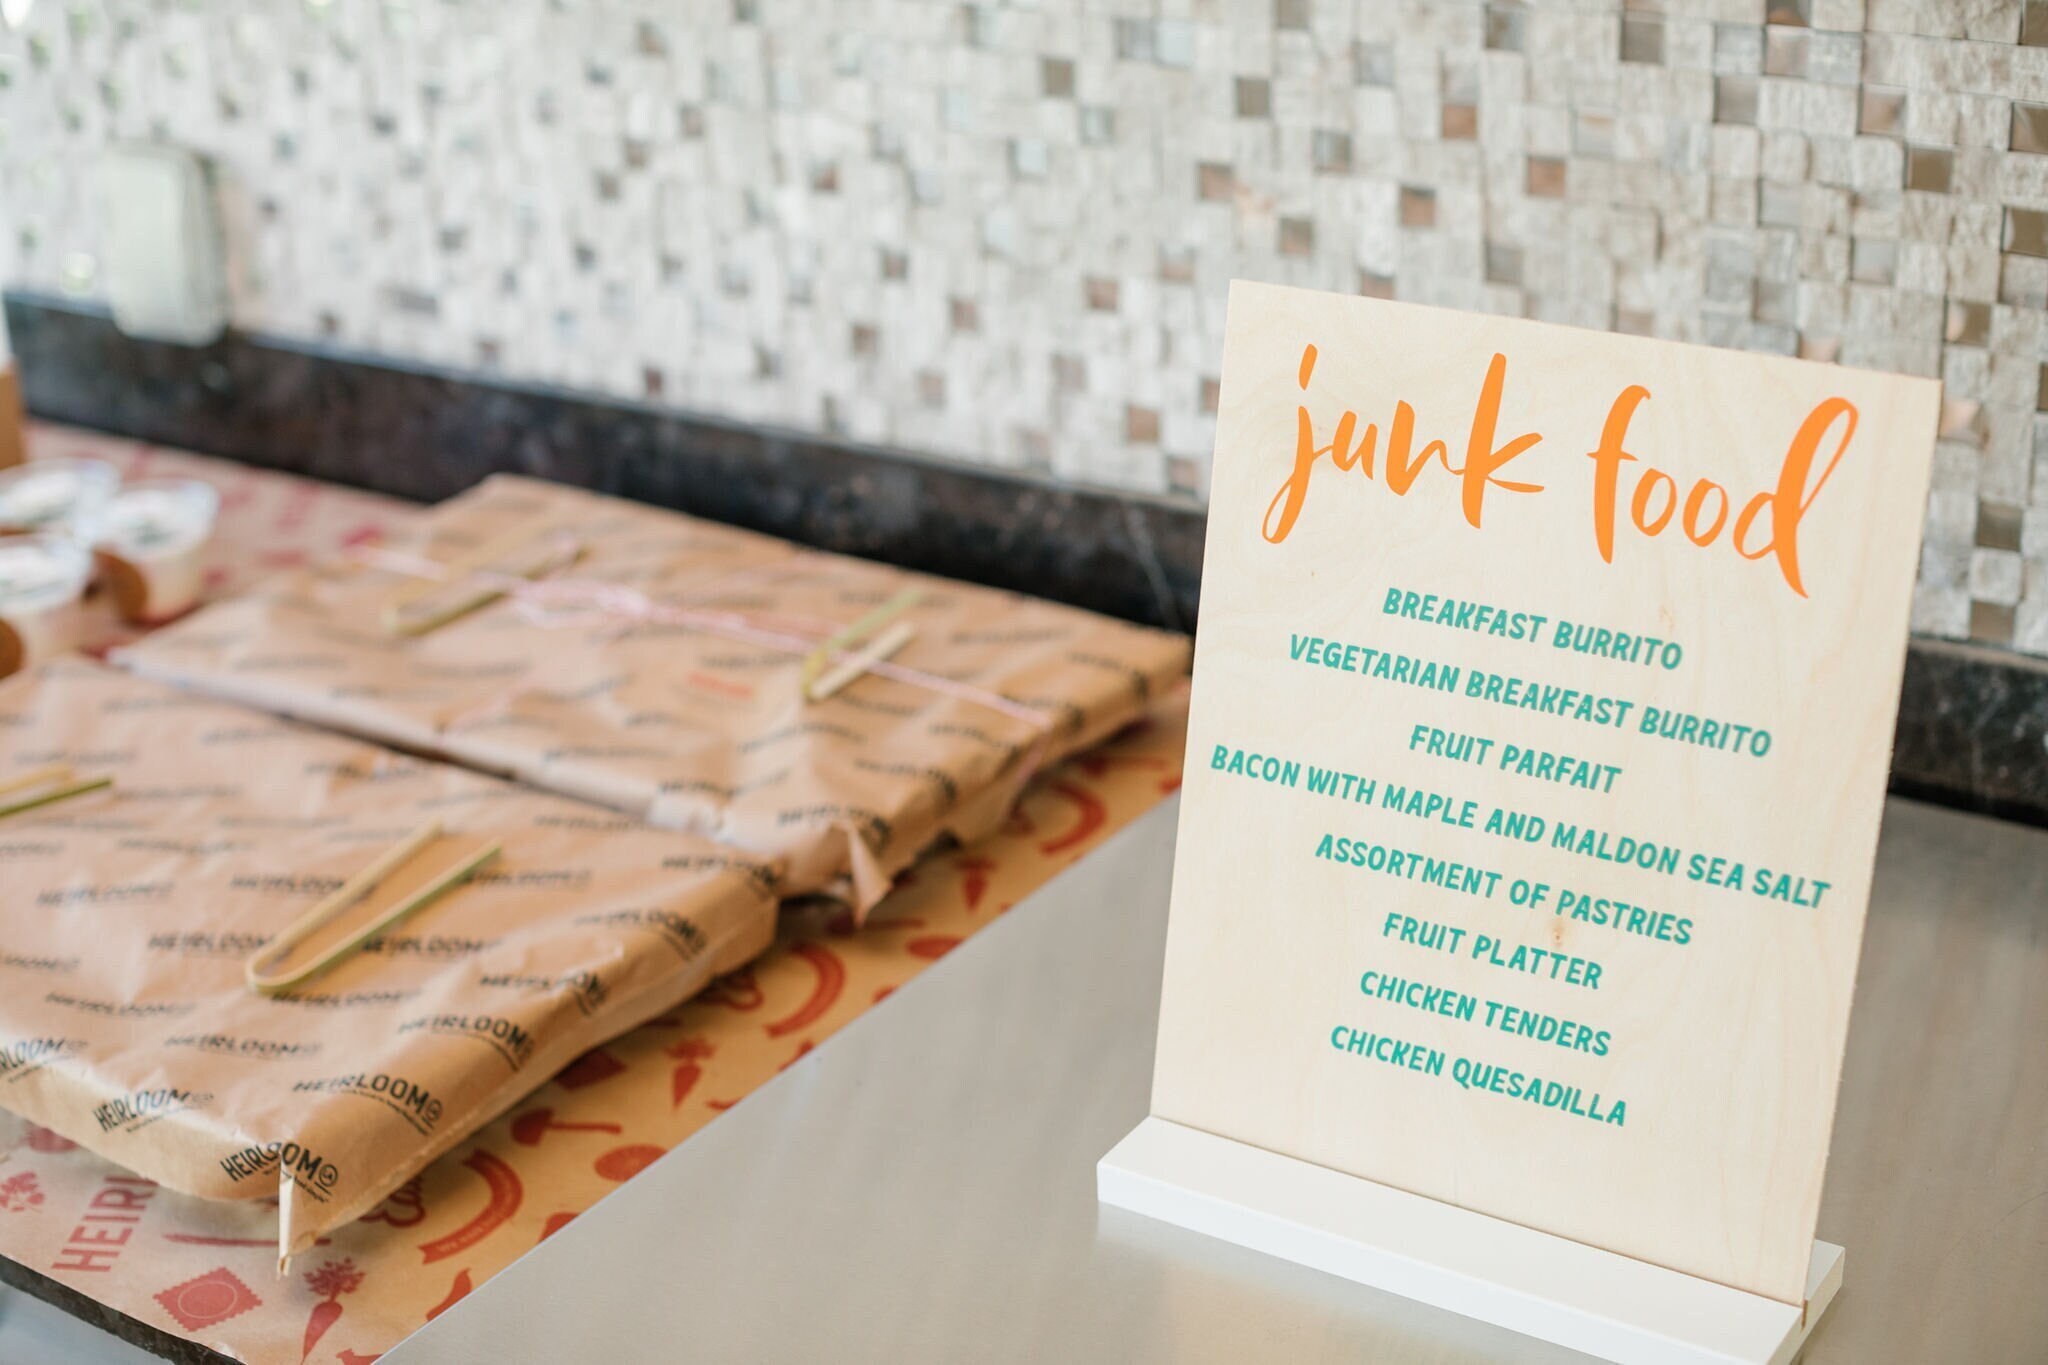 junk food
BREAKFAST BURRITO
VEGETARIAN BREAKFAST BURRITO
FRUIT PARFAIT
BACON WITH MAPLE AND MALDON SEA SALT
ASSORTMENT OF PASTRIES
FRUIT PLATTER
CHICKEN TENDERS
CHICKEN QUESADILLA
HEIRLOOM LA
HEIRLOOM
HEIRLOOM
HEIRLOOM
HEIRLOOM LA
HEIRLOOM
HEIRLOOM LA
HEIRLOOM LA